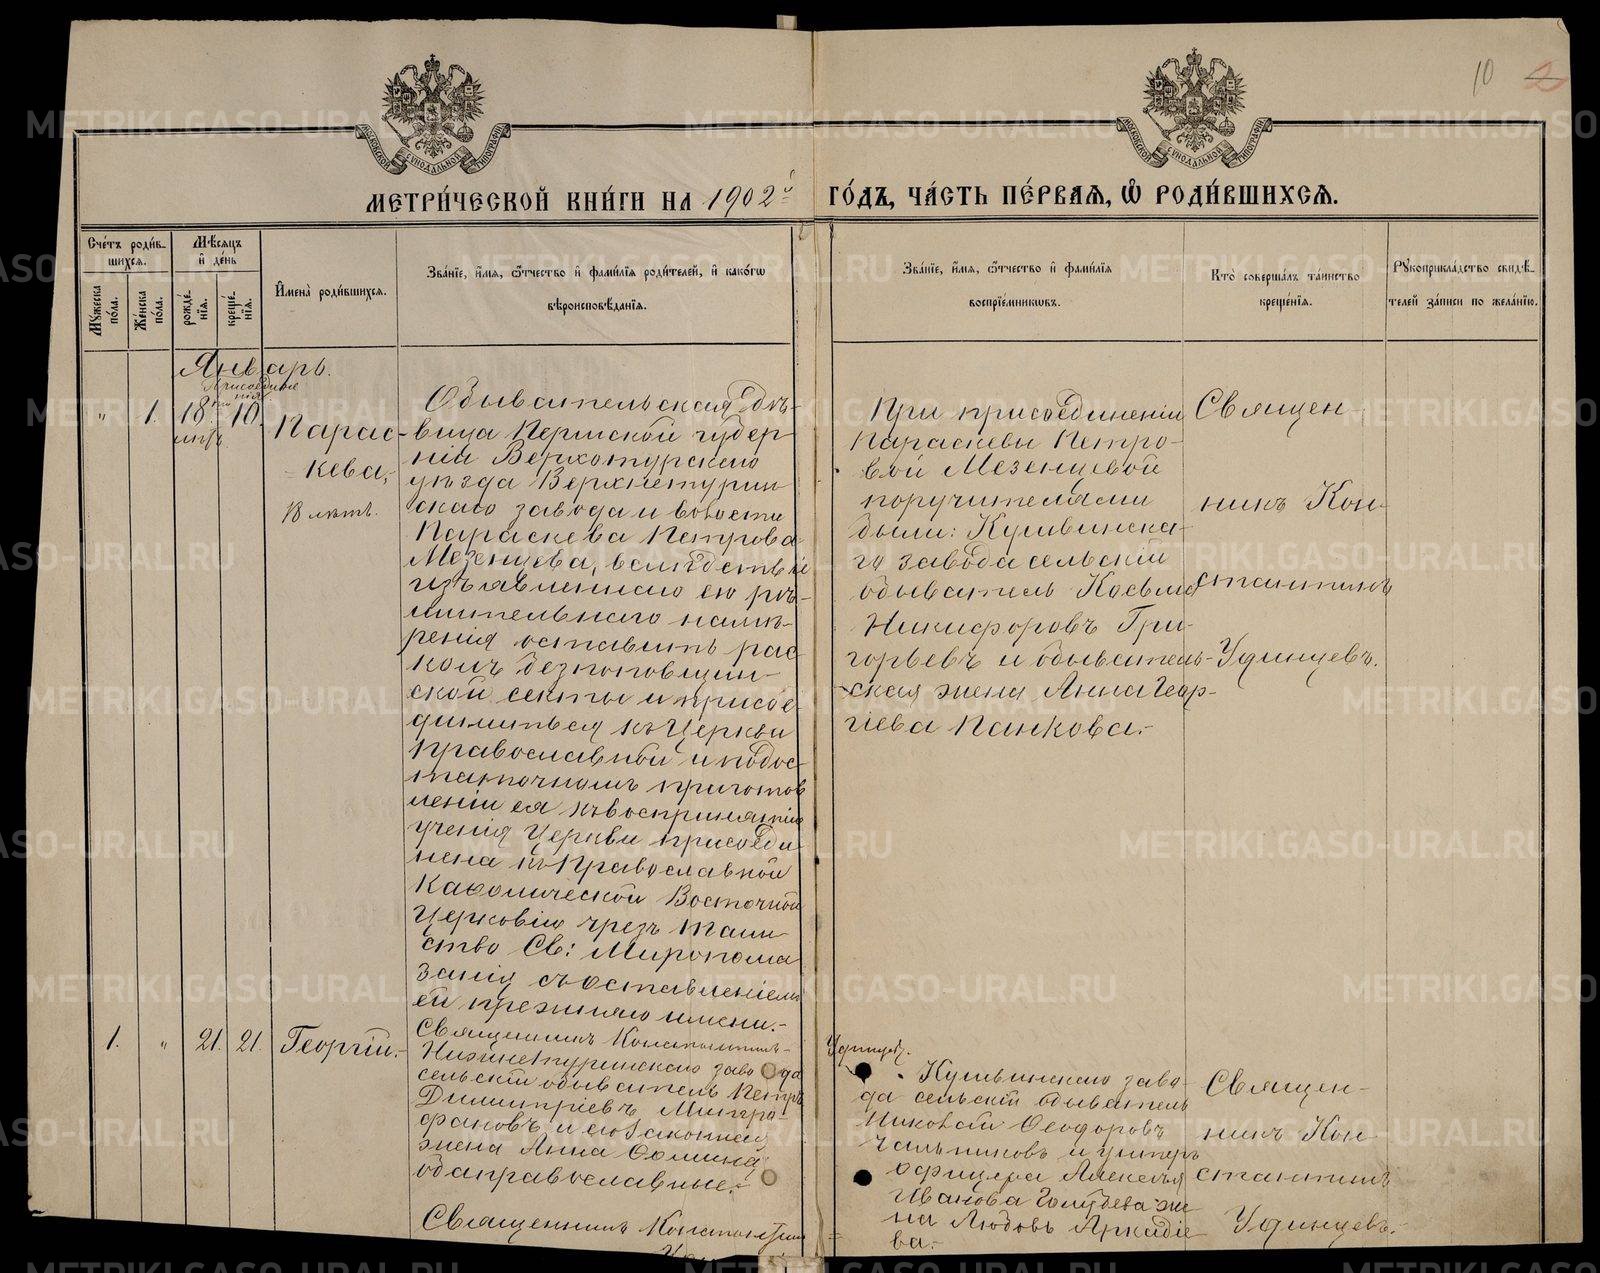 10
МОСКОВСКОЙ СѴНОДАЛЬНОЙ ТИПОГРАФІИ
МОСКОВСКОЙ СѴНОДАЛЬНОЙ ТИПОГРАФІИ
МЕТРИ́ЧЕСКОЙ КНИ́ГИ НА 1902 й ГО́ДЪ, ЧА́СТЬ ПЕ́РВАѦ, Ѡ РОДИ́ВШИХСѦ.
Сче́тъ роди́в-
шихсѧ.
Мꙋжеска по́ла.
Же́нска по́ла.
Мѣ́сѧцъ
и҆ де́нь
рожде́нїѧ.
креще́нїѧ.
И҆мена̀ роди́вшихсѧ.
Зва́нїе, и҆́мѧ, ѻ҆́тчество и҆ фами́лїѧ роди́телей, и҆ како́гѡ
вѣроисповѣ́данїѧ.
Зва́нїе, и҆́мѧ, ѻ҆́тчество и҆ фами́лїѧ
воспрїе́мниковъ.
Кто̀ соверша́лъ та́инство
креще́нїѧ.
Рꙋкоприкла́дство свидѣ́-
телей за́писи по жела́нїю.
Январь.
Присоедине
нія
" 1. 18 10.
лѣтъ
Парас-
кева,
18 лѣтъ.
Обывательская дѣ-
вица Пермской губер
ніи Верхотурскаго
уѣзда Верхнетурин
скаго завода и волости
Параскева Петрова
Мезенцева, вслѣдствіе
изъявленнаго ею рѣ-
шительнаго намѣ-
ренія оставить рас
колъ безпоповщин-
ской секты и присое
диниться къ Церкви
Православной и по дос-
таточномъ приготов
леніи ея къ воспринятію
ученія Церкви присоеди
нена къ Православной
Каѳолической Восточной
Церковію чрезъ таин
ство Св: Миропома
занія съ оставленіемъ
ей прежняго имени.-
Священникъ Константинъ
Удинцевъ.
При присоединеніи
Параскевы Петро-
вой Мезенцевой
поручителями
были: Кушвинска-
го завода сельскій
обыватель Косьма
Никифоровъ Гри-
горьевъ и обыватель-
ская жена Анна Геор-
гіева Панкова.-
Священ-
никъ Кон-
стантинъ
Удинцевъ.
1. " 21. 21. Георгій.-
Нижнетуринскаго завода
сельскій обыватель Петръ
Димитріевъ Митро-
фановъ и его законная
жена Анна Ѳомина
оба православные.-
Кушвинскаго заво-
да сельскій обыватель
Николай Ѳеодоровъ
и унтеръ
офицера Алексѣя
Иванова Голубева же
на Любовь Аркадіе
ва.-
Священ-
никъ Кон-
стантинъ
Удинцевъ.-
Священникъ Константин
METRIKI.GASO-URAL.RU